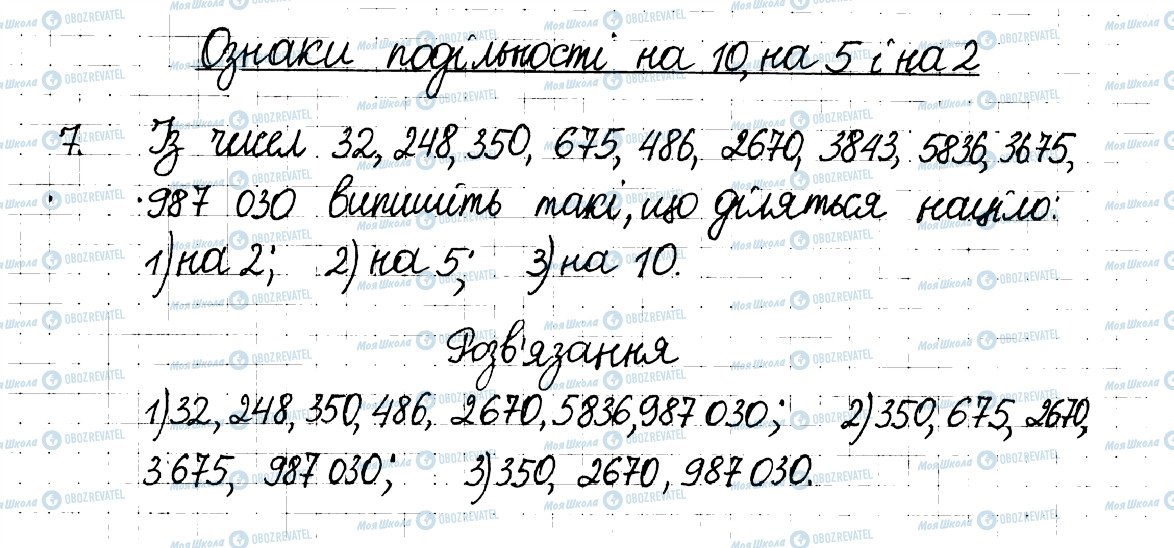 Ознаки подільності на 10, на 5 і на 2
7. Із чисел 32, 248, 350, 675, 486, 2670, 3843, 5836, 3675,
987 030 випишіть такі, що діляться націло:
1) на 2; 2) на 5; 3) на 10.
Розв'язання
1) 32, 248, 350, 486, 2670, 5836, 987 030; 2) 350, 675, 2670,
3675, 987 030; 3) 350, 2670, 987 030.